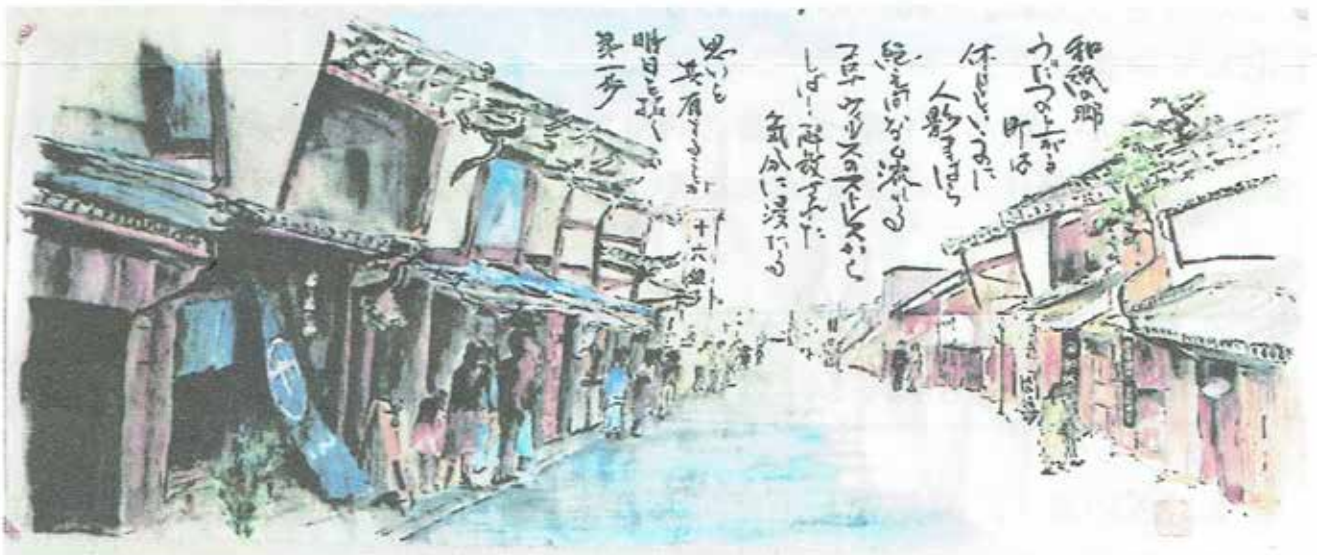 和紙の郷
うだつの上がる
町は
休日というのに
人影まばら
流れる
コロナウィルスのストレスから
しばし解放された
気分に浸たる
思いを
共有することが
明日を拓く
第一歩
十六